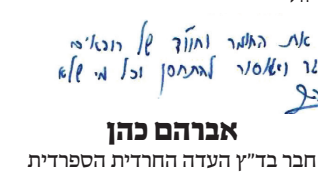 את החומר וחוו״ד של רופאים
גר ויאסור להתחסן וכל מי שלא
אברהם כהן
חבר בד״ץ העדה החרדית הספרדית